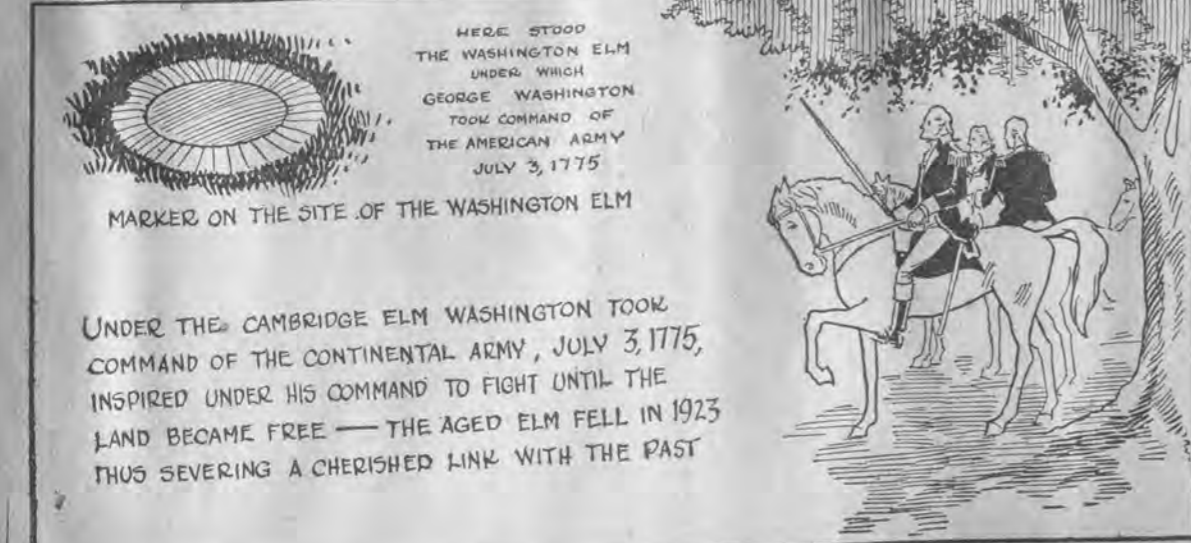 HERE STOOD
THE WASHINGTON ELM
UNDER WHICH
GEORGE WASHINGTON
TOOK COMMAND OF
THE AMERICAN ARMY
JULY 3, 1775
MARKER ON THE SITE OF THE WASHINGTON ELM
UNDER THE CAMBRIDGE ELM WASHINGTON TOOK
COMMAND OF THE CONTINENTAL ARMY, JULY 3, 1775,
INSPIRED UNDER HIS COMMAND TO FIGHT UNTIL THE
LAND BECAME FREE — THE AGED ELM FELL IN 1923
THUS SEVERING A CHERISHED LINK WITH THE PAST